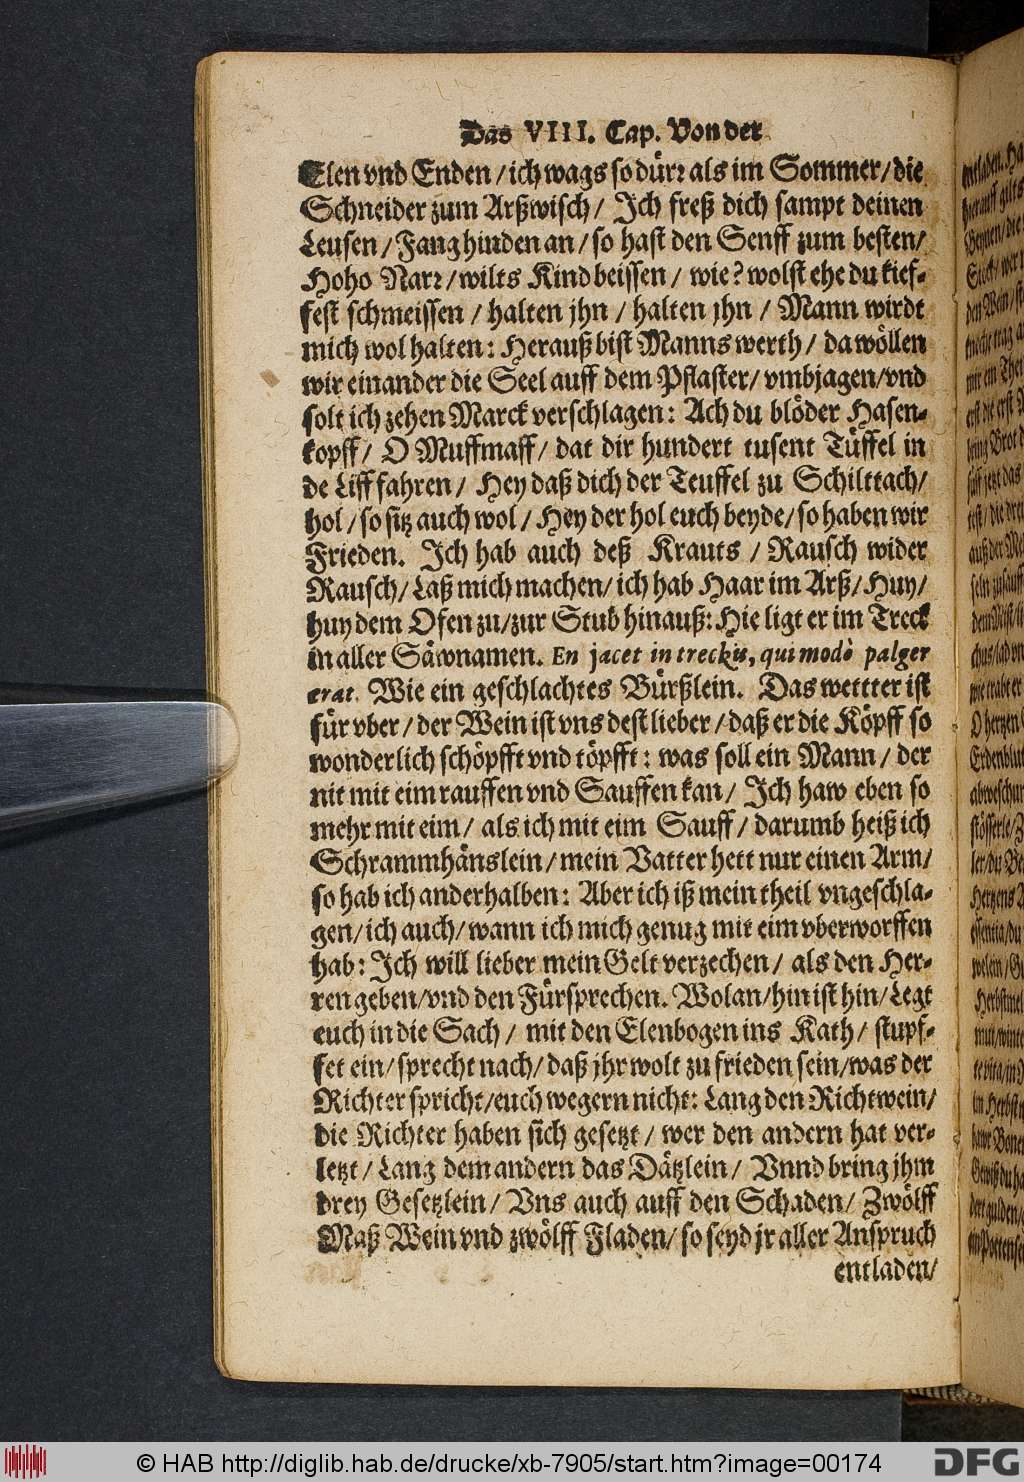 Das VIII. Cap. Von der
Elen vnd Enden / ich wags so dürꝛ als im Sommer / die
Schneider zum Arßwisch / Ich freß dich sampt deinen
Leusen / Fang hinden an / so hast den Senff zum besten /
Hoho Narꝛ / wilts Kind beissen / wie? wolst ehe du kief-
fest schmeissen / halten jhn / halten jhn / Mann wirdt
mich wol halten: Herauß bist Manns werth / da wöllen
wir einander die Seel auff dem Pflaster / vmbjagen / vnd
solt ich zehen Marck verschlagen: Ach du blöder Hasen-
kopff / O Muffmaff / dat dir hundert tusent Tüffel in
de Liff fahren / Hey daß dich der Teuffel zu Schilttach /
hol / so sitz auch wol / Hey der hol euch beyde / so haben wir
Frieden. Ich hab auch deß Krauts / Rausch wider
Rausch / Laß mich machen / ich hab Haar im Arß / Huy /
huy dem Ofen zu / zur Stub hinauß: Hie ligt er im Treck
in aller Säwnamen. En jacet in treckis, qui modò palger
erat. Wie ein geschlachtes Bürßlein. Das wettter ist
für vber / der Wein ist vns dest lieber / daß er die Köpff so
wonderlich schöpfft vnd töpfft: was soll ein Mann / der
nit mit eim rauffen vnd Sauffen kan / Ich haw eben so
mehr mit eim / als ich mit eim Sauff / darumb heiß ich
Schrammhänslein / mein Vatter hett nur einen Arm /
so hab ich anderhalben: Aber ich iß mein theil vngeschla-
gen / ich auch / wann ich mich genug mit eim vberworffen
hab: Ich will lieber mein Gelt verzechen / als den Her-
ren geben / vnd den Fürsprechen. Wolan / hin ist hin / Legt
euch in die Sach / mit den Elenbogen ins Kath / stupf-
fet ein / sprecht nach / daß jhr wolt zu frieden sein / was der
Richter spricht / euch wegern nicht: Lang den Richtwein /
die Richter haben sich gesetzt / wer den andern hat ver-
letzt / Lang dem andern das Dätzlein / Vnnd bring jhm
drey Gesetzlein / Vns auch auff den Schaden / Zwölff
Maß Wein vnd zwölff Fladen / so seyd jr aller Anspruch
entladen /
© HAB http://diglib.hab.de/drucke/xb-7905/start.htm?image=00174
DFG